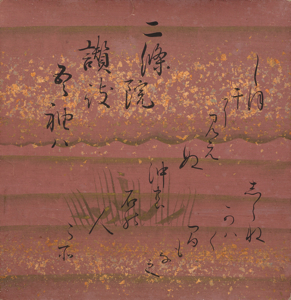 二條院
讃岐
吾袖ハ
しほ
干に
見え
ぬ
沖の
石の
人
こそ
しらね
かハく
間も
なし